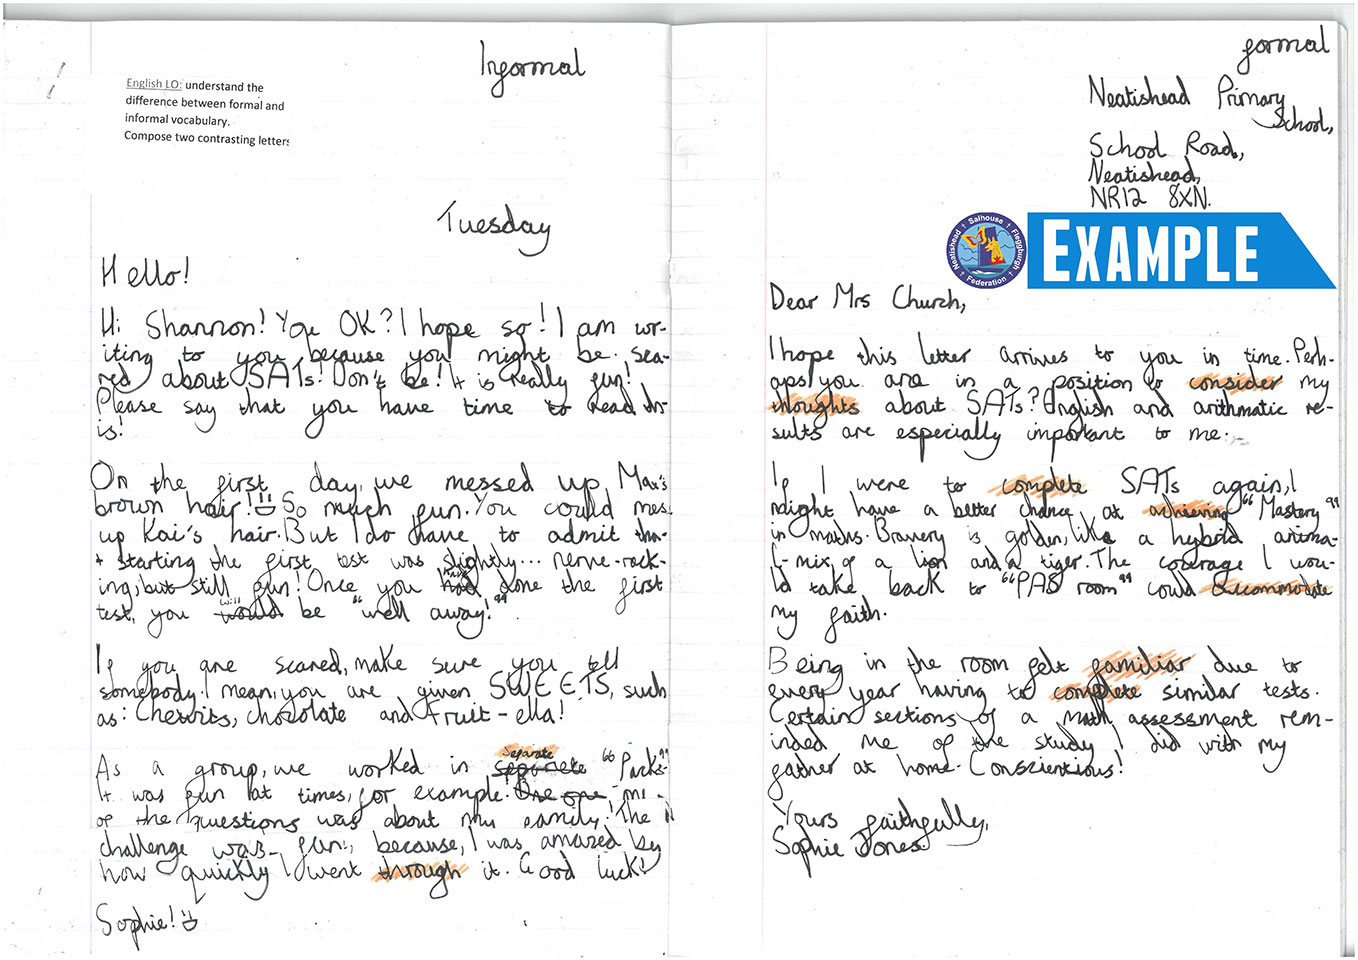 Informal
English LO: understand the
difference between formal and
informal vocabulary.
Compose two contrasting letters
Tuesday
Hello!
Hi Shannon! You OK? I hope so! I am wr-
iting to you because you might be sca-
red about SATs! Don't be! It is really fun!
Please say that you have time to read th-
is!
On the first day, we messed up Max's
brown hair! So much fun. You could mess
up Kai's hair. But I do have to admit tha-
t starting the first test was slightly... nerve-rack-
ing, but still fun! Once you have done the first
test, you will be "well away!"
If you are scared, make sure you tell
somebody. I mean, you are given SWEETS, such
as: Chewits, chocolate and Fruit-ella!
As a group, we worked in separete "Park"
separate
It was fun at times, for example: One one
of the questions was about my family! The
challenge was fun, because, I was amazed by
how quickly I went through it. Good luck!
Sophie!
formal
Neatishead Primary
School,
School Road,
Neatishead,
NR12 8XN.
Neatishead † Salhouse † Fleggburgh † Federation †
EXAMPLE
Dear Mrs Church,
I hope this letter arrives to you in time. Perh-
aps you are in a position to consider my
thoughts about SATs? English and arithmatic re-
sults are especially important to me.
If I were to complete SATs again, I
might have a better chance at achieving "Mastery"
in maths. Bravery is golden, like a hybrid anima-
l-mix of a lion and a tiger. The coverage I wou-
ld take back to "PAS room" could accommodate
my faith.
Being in the room felt familiar due to
every year having to complete similar tests.
Certain sections of a math assessment rem-
inded me of the study I did with my
father at home. Conscientious!
Yours faithfully,
Sophie Jones